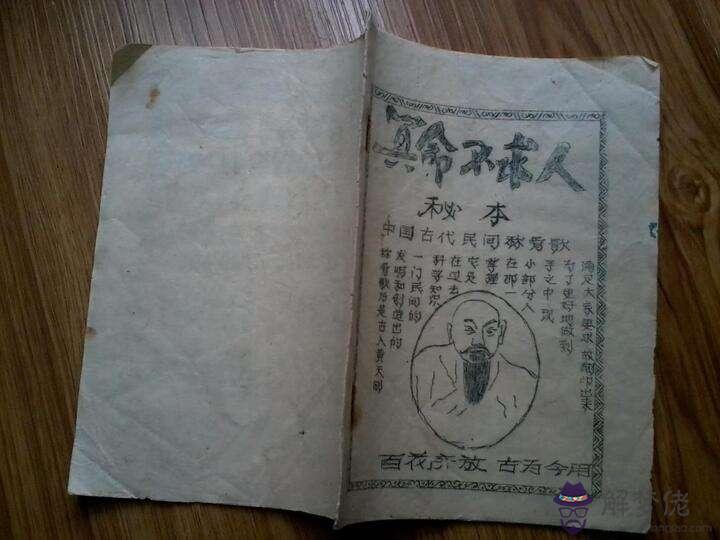 算命不求人
秘本
中国古代民间称骨歌
称骨歌乃是古人黄天罡
发明和创造出的
一门民间的
科学知识
在过去
它是
掌握
在那一
小部分人
手之中 现
为了更好地做到
满足大家要求 故翻印出来
百花齐放 古为今用
解梦佬